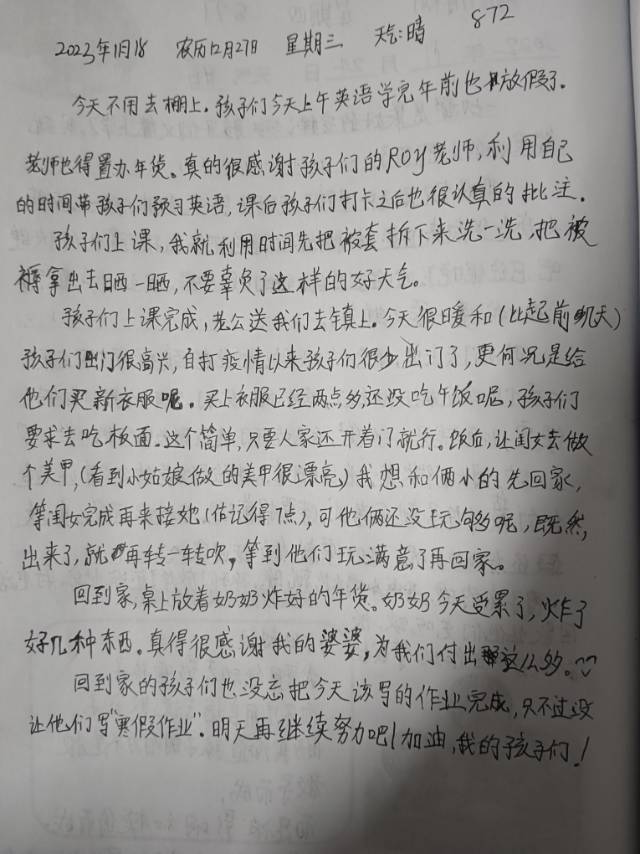 872
2023年1月18 农历12月27日 星期三 天气:晴
今天不用去棚上.孩子们今天上午英语学完年前也放假了.
老师也得置办年货。真的很感谢孩子们的ROY老师,利用自己
的时间带孩子们预习英语,课后孩子们打卡之后也很认真的批注.
孩子们上课,我就利用时间先把被套拆下来洗一洗,把被
褥拿出去晒一晒,不要辜负了这样的好天气。
孩子们上课完成,老公送我们去镇上.今天很暖和(比起前几天)
孩子们出门很高兴,自打疫情以来孩子们很少出门了,更何况是给
他们买新衣服呢。买上衣服已经两点多还没吃午饭呢,孩子们
要求去吃板面.这个简单,只要人家还开着门就行。饭后,让闺女去做
个美甲,(看到小姑娘做的美甲很漂亮)我想和俩小的先回家,
等闺女完成再来接她(估记得7点),可他俩还没玩够呢,既然,
出来了,就再转一转吹,等到他们玩满意了再回家。
回到家,桌上放着奶奶炸好的年货。奶奶今天受累了,炸了
好几种东西.真得很感谢我的婆婆,为我们付出这么多。
回到家的孩子们也没忘把今天该写的作业完成,只不过没
让他们写"寒假作业".明天再继续努力吧!加油,我的孩子们!